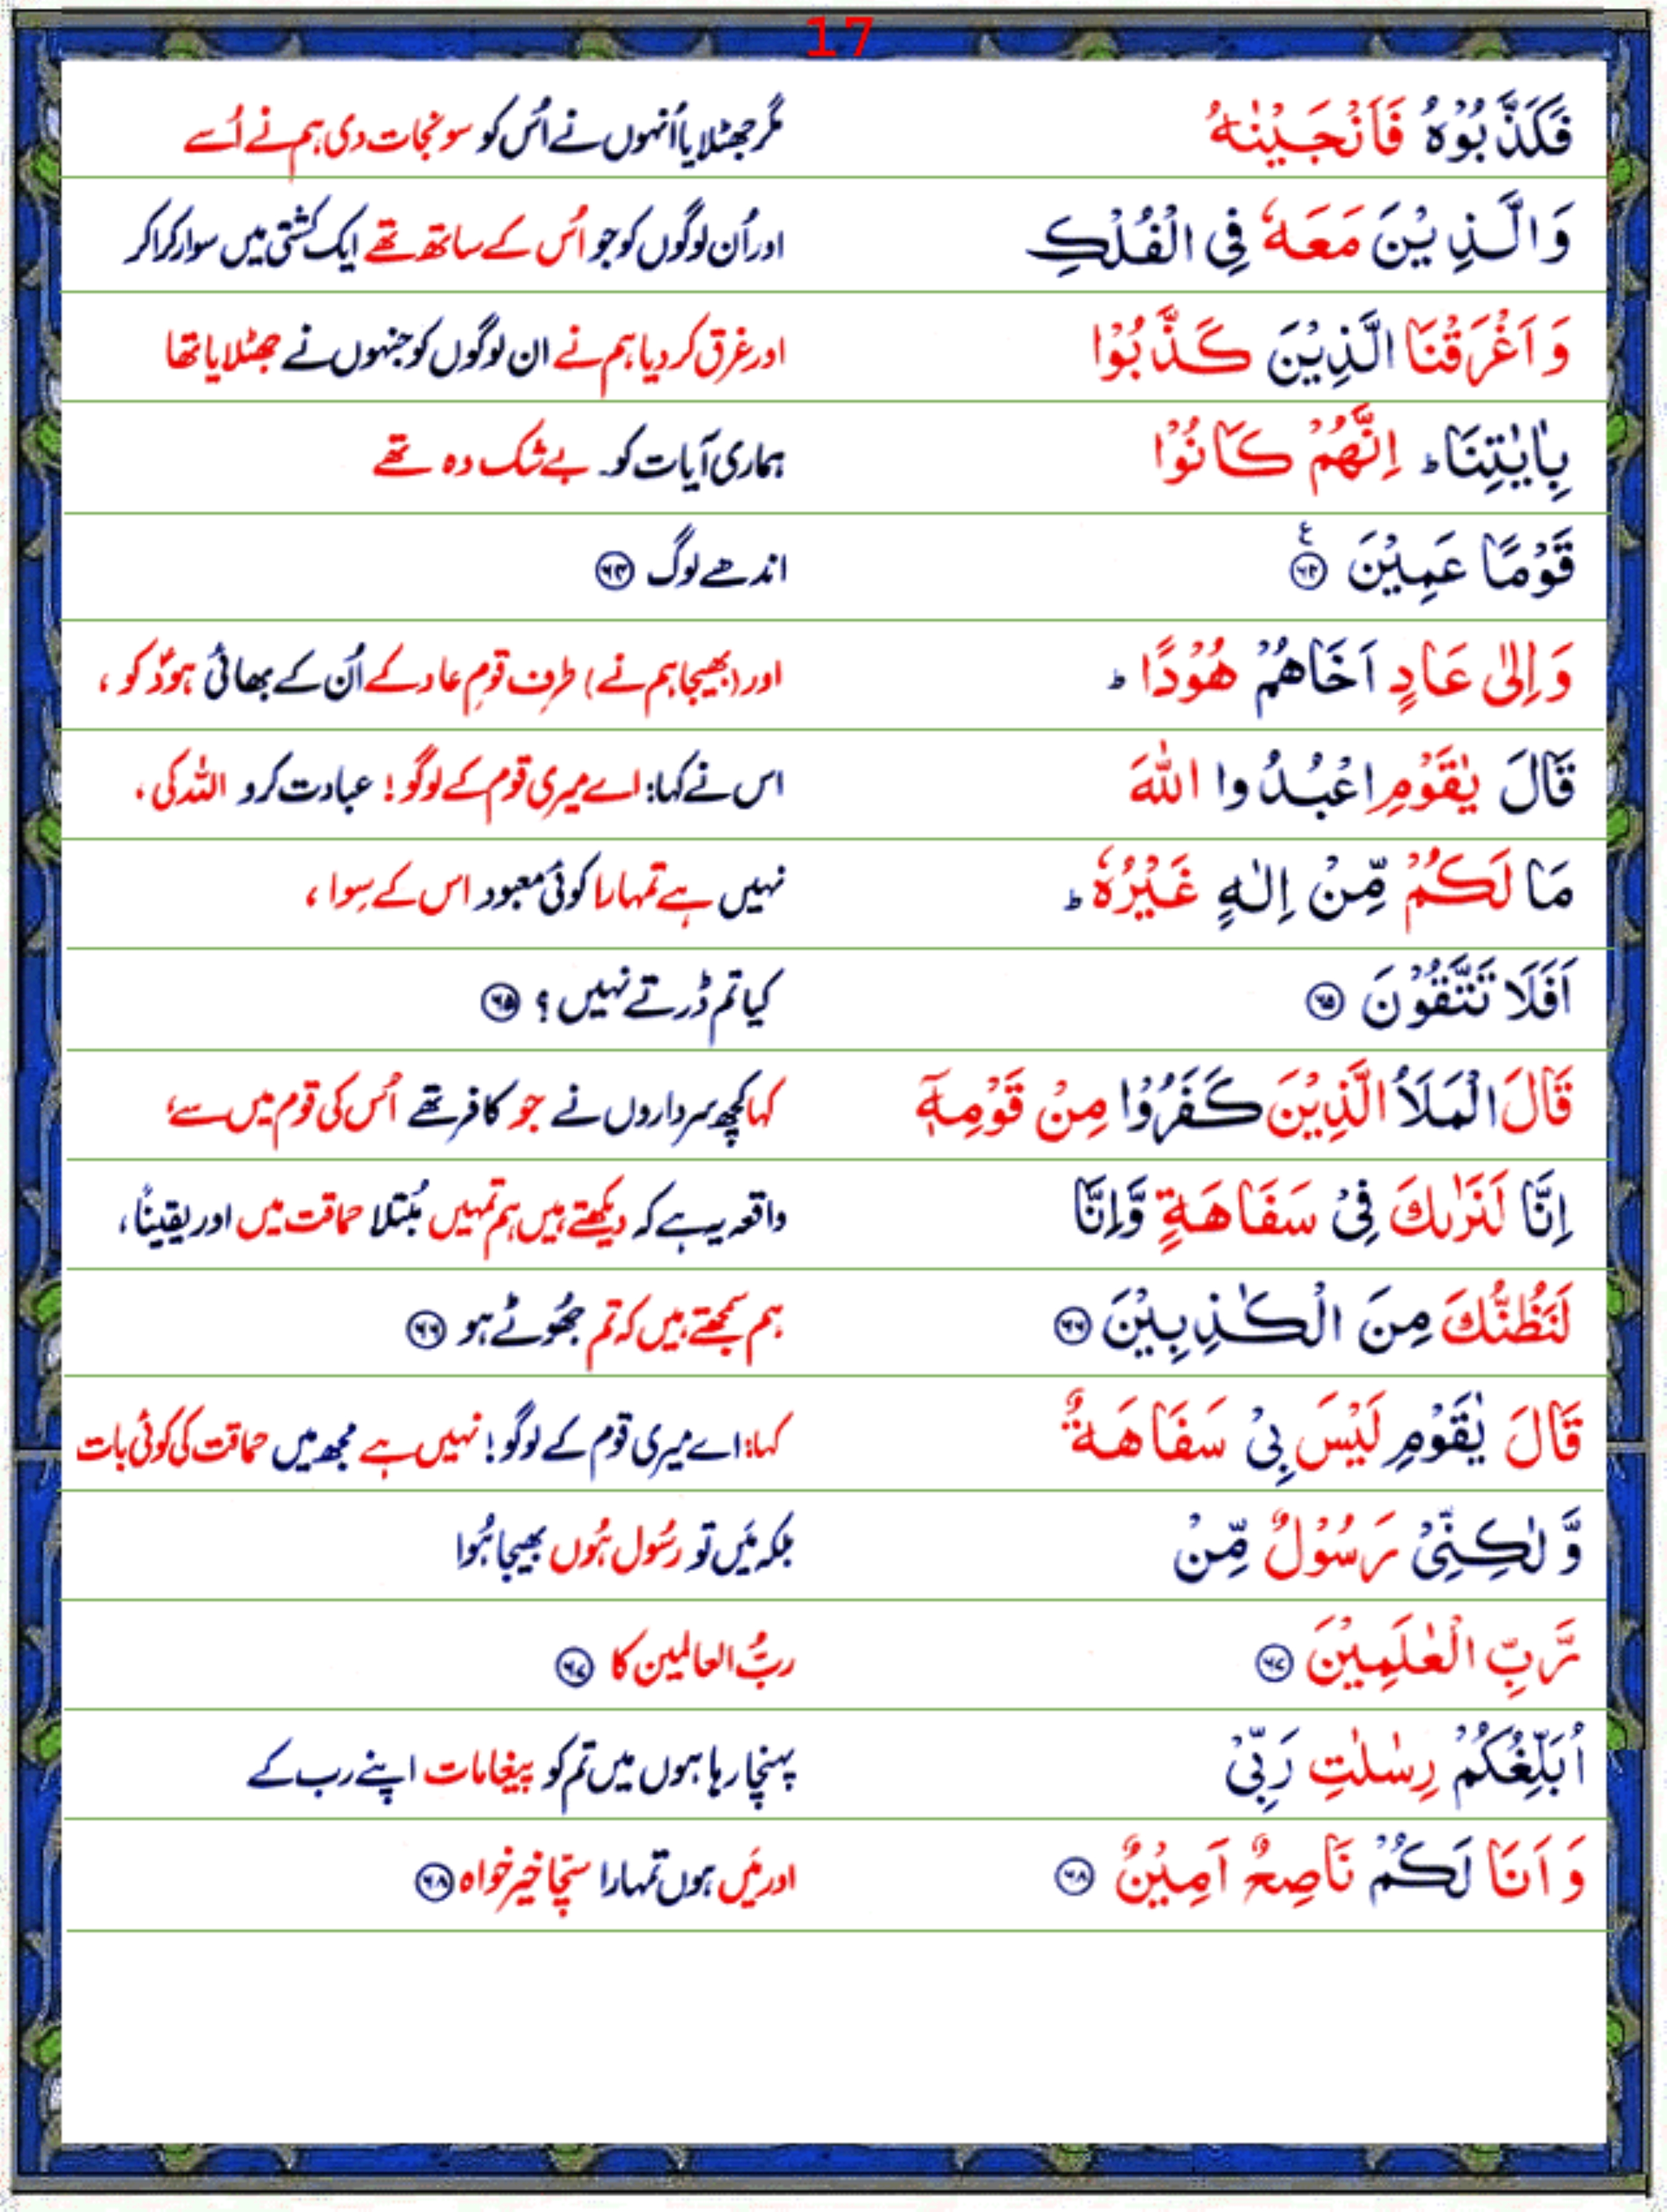 17
فَكَذَّبُوْهُ فَاَنْجَيْنٰهُ مگر جھٹلایا اُنہوں نے اُس کو سو نجات دی ہم نے اُسے
وَالَّذِيْنَ مَعَهٗ فِي الْفُلْكِ اور اُن لوگوں کو جو اُس کے ساتھ تھے ایک کشتی میں سوار کرا کر
وَاَغْرَقْنَا الَّذِيْنَ كَذَّبُوْا اور غرق کر دیا ہم نے ان لوگوں کو جنہوں نے جھٹلایا تھا
بِاٰيٰتِنَا ؕ اِنَّهُمْ كَانُوْا ہماری آیات کو۔ بے شک وہ تھے
قَوْمًا عَمِيْنَ ۶۴ ع اندھے لوگ ۶۴
وَاِلٰى عَادٍ اَخَاهُمْ هُوْدًا ؕ اور (بھیجا ہم نے) طرف قومِ عاد کے اُن کے بھائی ہودؑ کو ،
قَالَ يٰقَوْمِ اعْبُدُوا اللّٰهَ اس نے کہا: اے میری قوم کے لوگو! عبادت کرو اللہ کی ،
مَا لَكُمْ مِّنْ اِلٰهٍ غَيْرُهٗ ؕ نہیں ہے تمہارا کوئی معبود اس کے سِوا ،
اَفَلَا تَتَّقُوْنَ ۶۵ کیا تم ڈرتے نہیں ؟ ۶۵
قَالَ الْمَلَاُ الَّذِيْنَ كَفَرُوْا مِنْ قَوْمِهٖۤ کہا کچھ سرداروں نے جو کافر تھے اُس کی قوم میں سے،
اِنَّا لَنَرٰىكَ فِيْ سَفَاهَةٍ وَّاِنَّا واقعہ یہ ہے کہ دیکھتے ہیں ہم تمہیں مُبتلا حماقت میں اور یقیناً ،
لَنَظُنُّكَ مِنَ الْكٰذِبِيْنَ ۶۶ ہم سمجھتے ہیں کہ تم جھُوٹے ہو ۶۶
قَالَ يٰقَوْمِ لَيْسَ بِيْ سَفَاهَةٌ کہا: اے میری قوم کے لوگو! نہیں ہے مجھ میں حماقت کی کوئی بات
وَّلٰكِنِّيْ رَسُوْلٌ مِّنْ بلکہ مَیں تو رسُول ہُوں بھیجا ہُوا
رَّبِّ الْعٰلَمِيْنَ ۶۷ ربُّ العالمین کا ۶۷
اُبَلِّغُكُمْ رِسٰلٰتِ رَبِّيْ پہنچا رہا ہوں میں تم کو پیغامات اپنے رب کے
وَاَنَا لَكُمْ نَاصِحٌ اَمِيْنٌ ۶۸ اور مَیں ہوں تمہارا سچّا خیر خواہ ۶۸